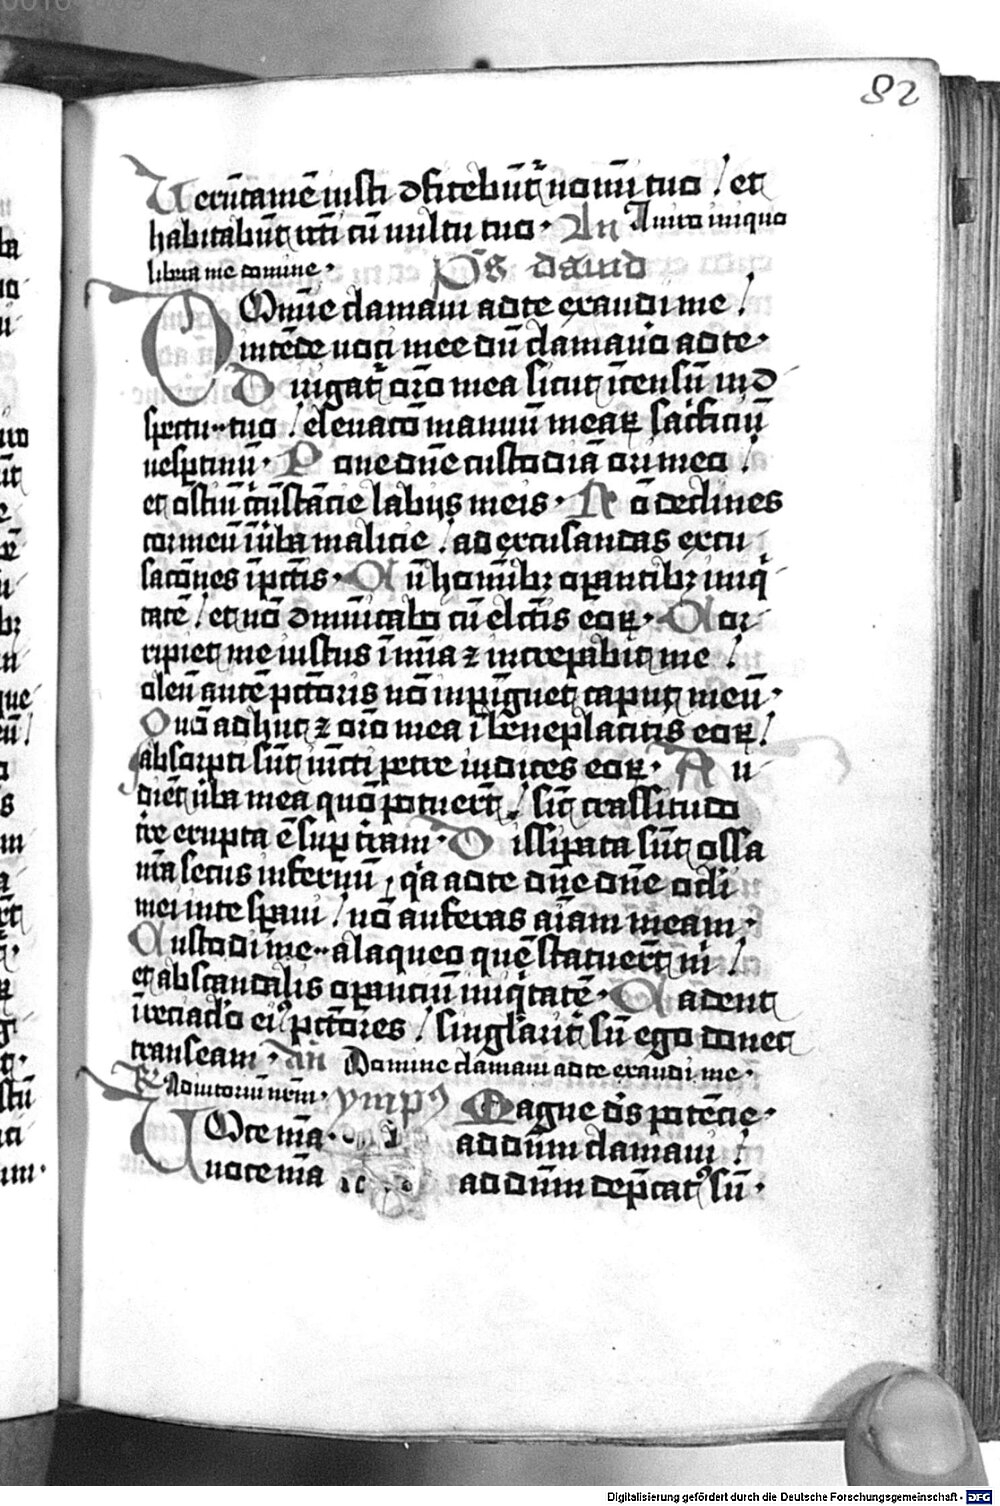 82
Uerūtamē iusti ɔfitebūt᷑ noı̄ tuo / et
habitabūt rc̄ti cū uultu tuo · An A uiro iniquo
libera me domine · Ps dauid
Domīe clamaui ad te exaudi me /
intēde uoci mee dū clamauo ad te ·
Dirigat᷑ or̄o mea sicut īcensū in ɔ
spectu tuo / eleuacō manuū meaꝝ sacͥficiū
uesptinū · Pone dn̄e custodiā ori meo /
et ostiū cͥcūstācie labijs meis · Nō declines
cor meū ī u̇ba malicie / ad excusandas excu
sacōnes ī pctīs · Cū homībꝫ oꝑantibꝫ iniqͥ
tatē / et nō ɔmūicabo cū elc̄tis eoꝝ · Cor
ripiet me iustus ī mīa ⁊ increpabit me /
oleū autē pctōris nō inpīguet caput meū ·
Qm̄ adhuc ⁊ or̄o mea ī beneplacitis eoꝝ /
absorpti sūt iūcti petre iudices eoꝝ · Au
diēt u̇ba mea qm̄ potuerūt / sic̄ crassitudo
tre erupta ē sup tͥram · Dissipata sūt ossa
nr̄a secus infernū , qͥa ad te dn̄e dn̄e oculi
mei in te spaui / nō auferas aīam meam ·
Custodi me a laqueo quē statuerūt mͥ /
et ab scandalis oꝑanciū iniqͥtatē · Cadent
ī reciaclo eiꝰ pctōres / singlarit᷑ sū ego donec
transeam · An Domine clamaui ad te exaudi me ·
R̄ Adiutoriū nr̄m · ympꝰ Magne ds̄ potēcie ·
Uoce mēa ad dūm clamaui /
uoce mēa ad dūm dep̄catꝰ sū ·
Digitalisierung gefördert durch die Deutsche Forschungsgemeinschaft - DFG